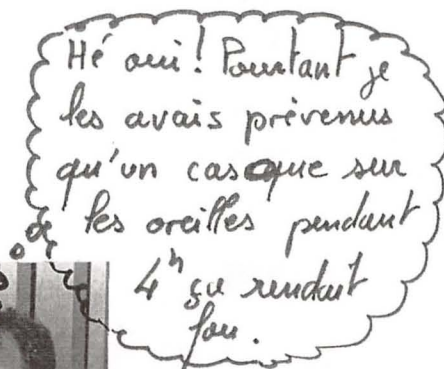 Hé oui! Pourtant je
les avais prévenus
qu'un casque sur
les oreilles pendant
4h ça rendait
fou.